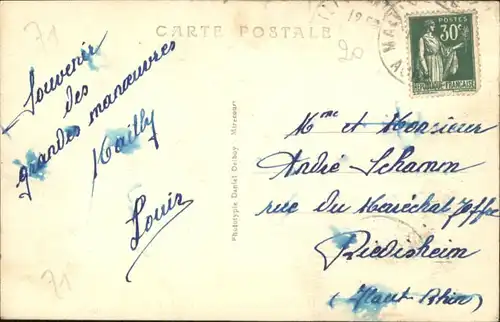 CARTE POSTALE
71
20
POSTES
30c
RÉPUBLIQUE FRANÇAISE
Souvenir
des
grandes manœuvres
Mailly
Louis
Phototypie Daniel Delboy - Mirecourt
Mme et Monsieur
André Schamm
rue du Maréchal Joffre
Riedisheim
(Haut Rhin)
71